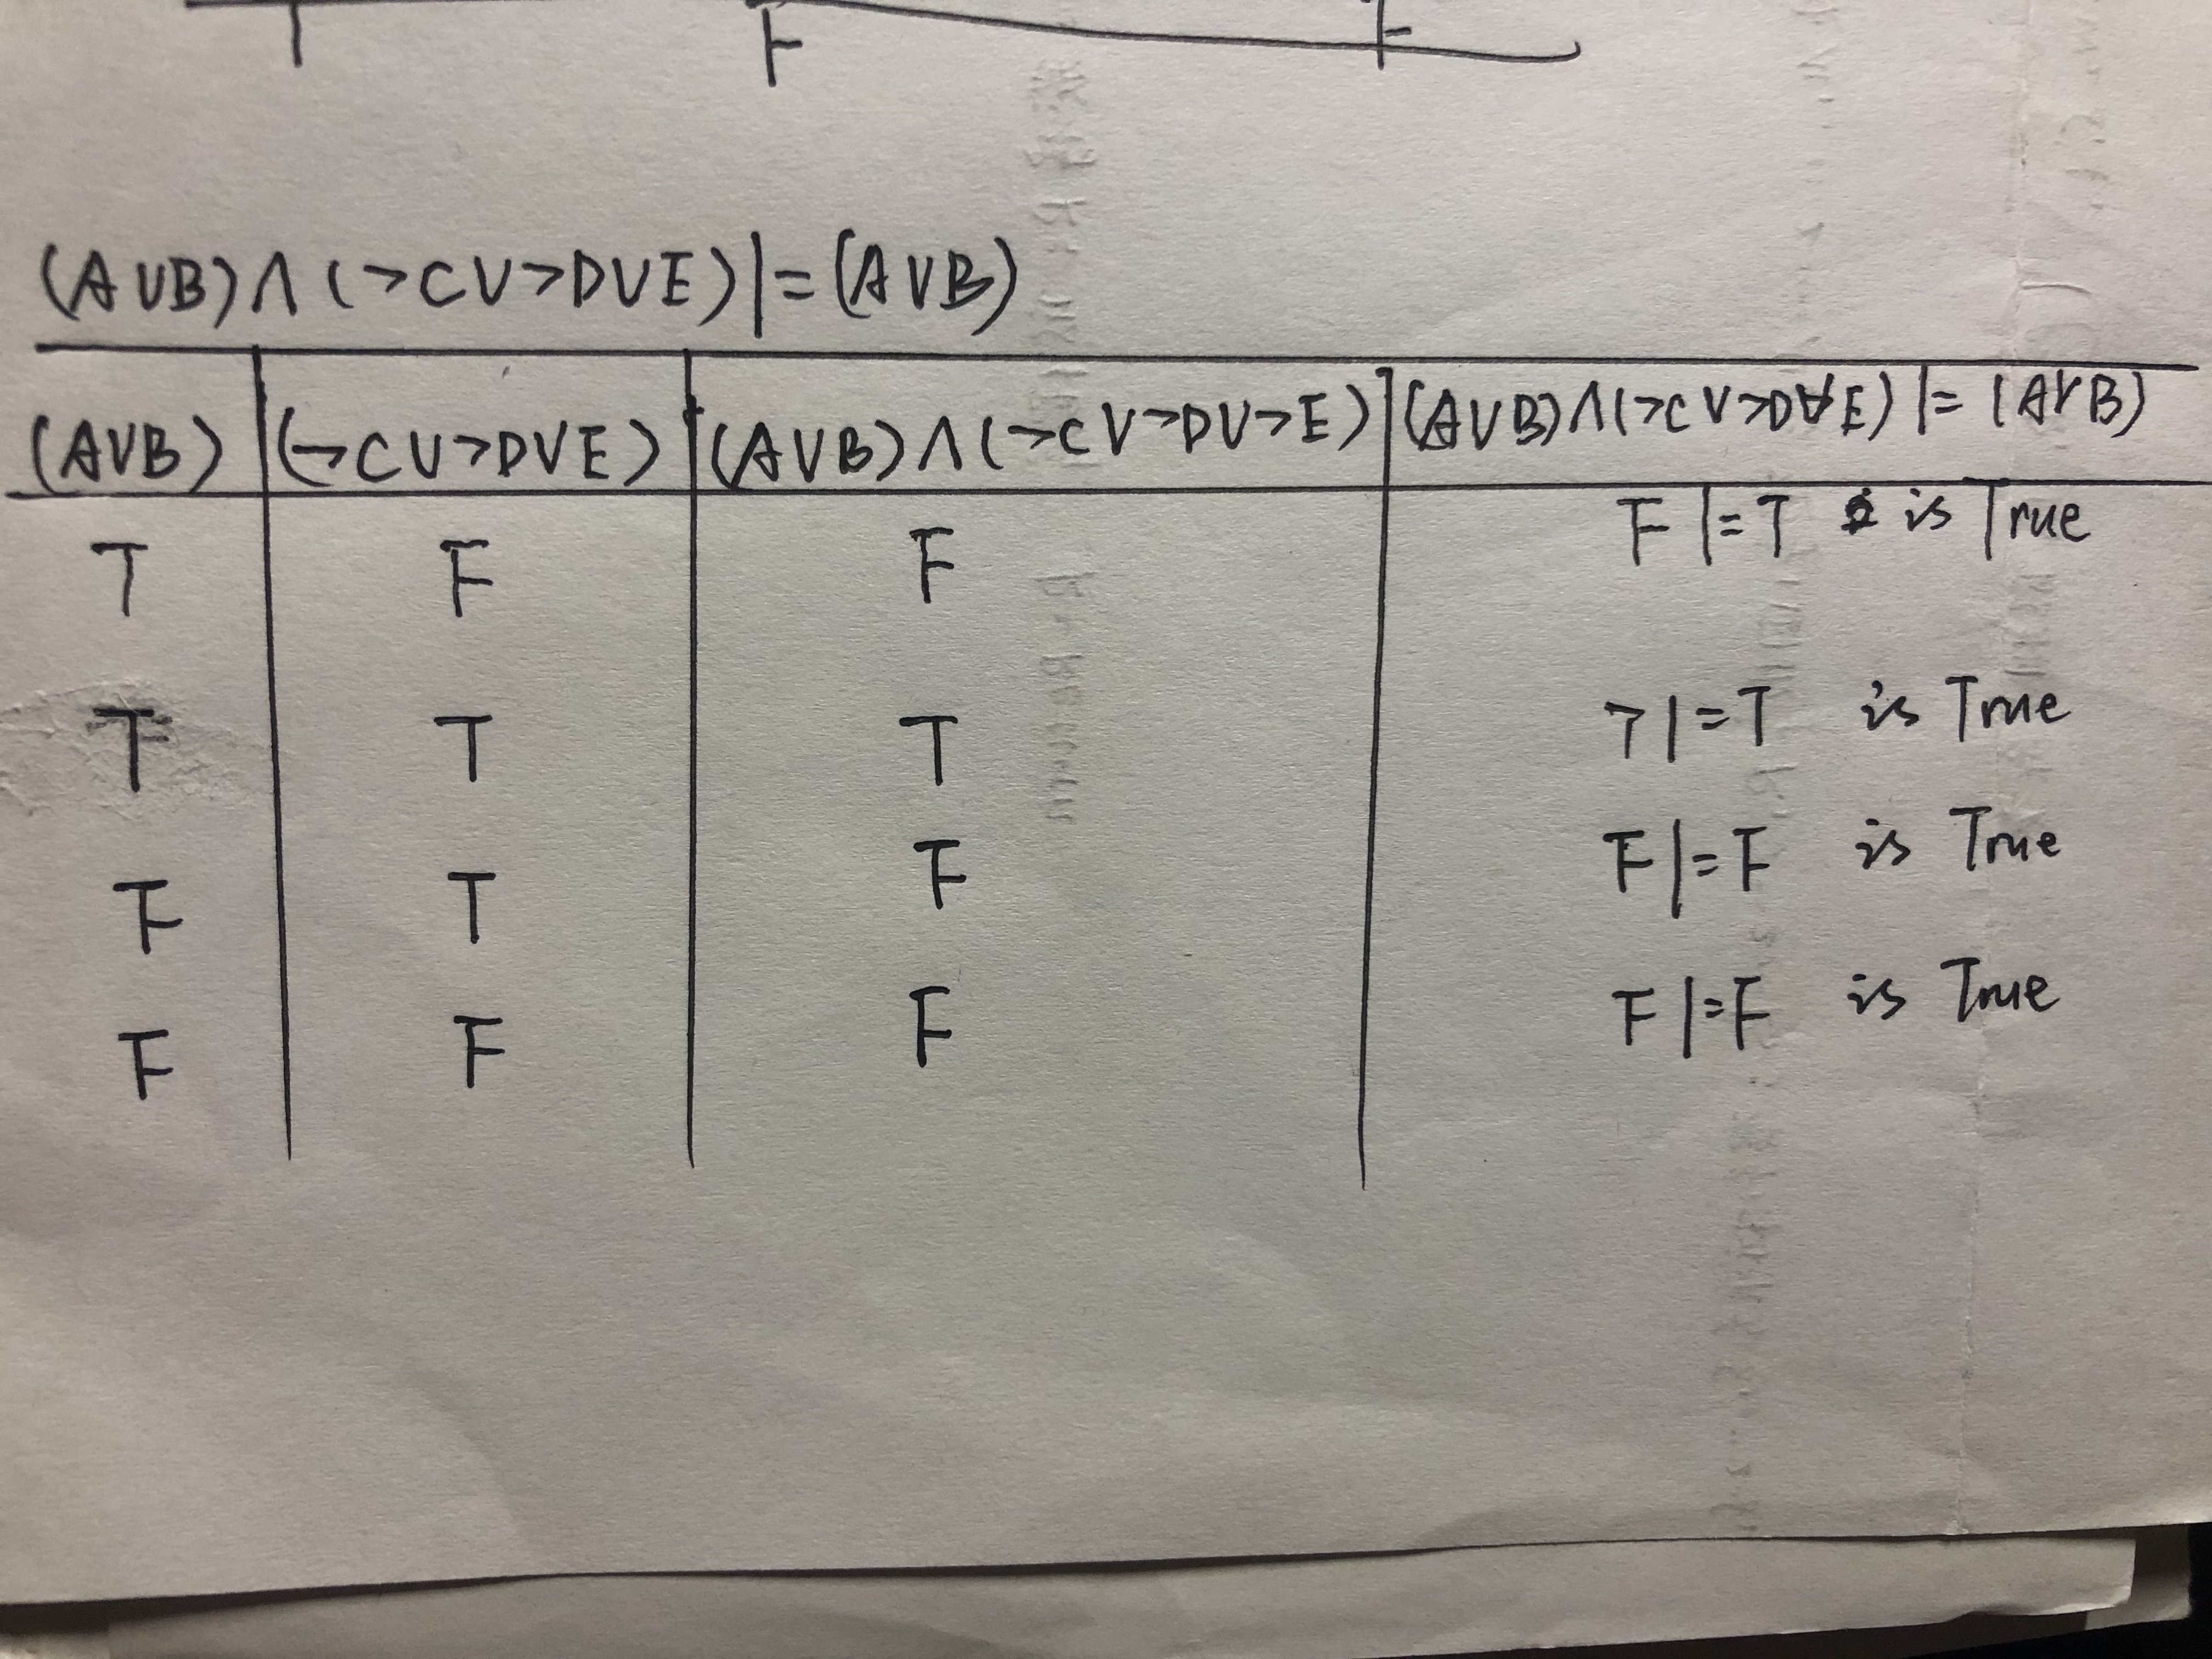 T F F
(A∨B)∧(¬C∨¬D∨E)|=(A∨B)
(A∨B) (¬C∨¬D∨E) (A∨B)∧(¬C∨¬D∨¬E) (A∨B)∧(¬C∨¬D∨E)|=(A∨B)
T F F F|=T is True
T T T T|=T is True
F T F F|=F is True
F F F F|=F is True